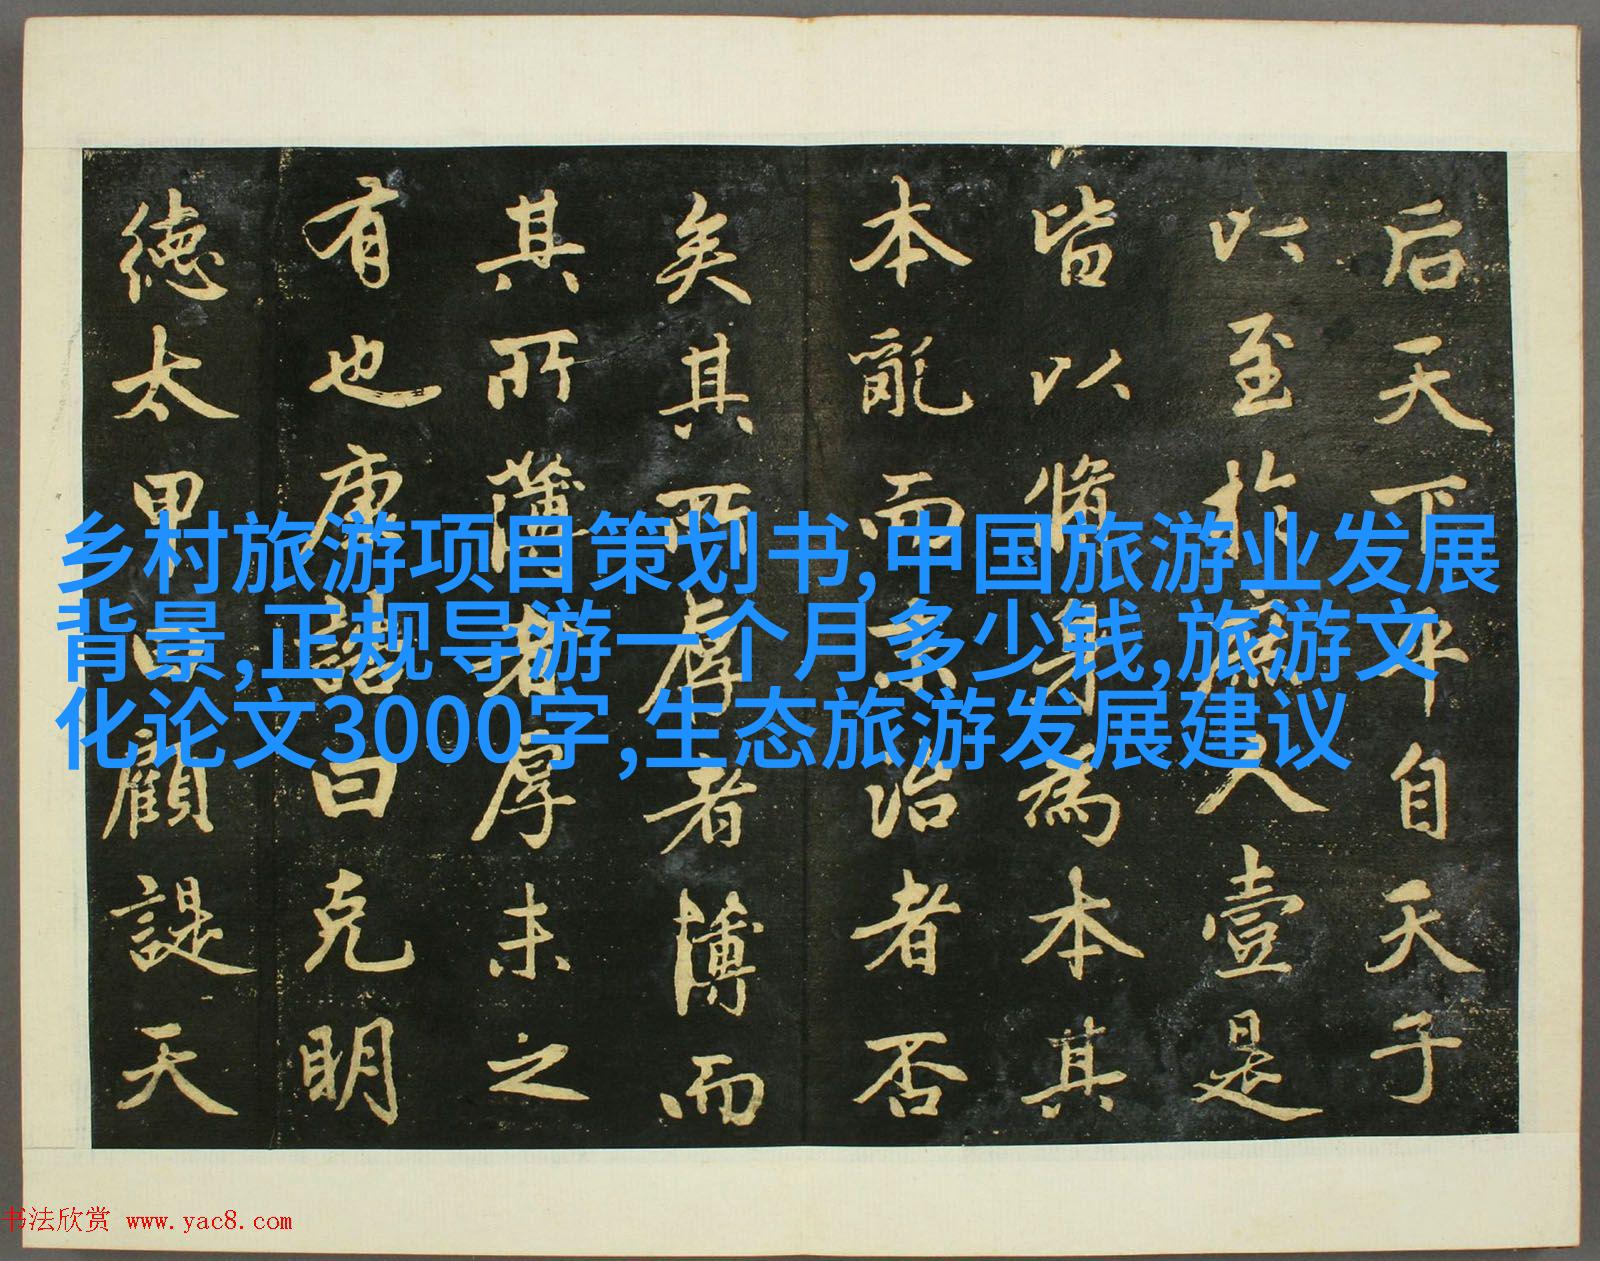 后天下平自天子
以至於庶人壹是
皆以脩身為本其
本亂而末治者否
矣其所厚者薄而
其所薄者厚未之
有也康誥曰克明
德太甲曰顧諟天
乡村旅游项目策划书,中国旅游业发展
背景,正规导游一个月多少钱,旅游文
化论文3000字,生态旅游发展建议
书法欣赏 www.yac8.com